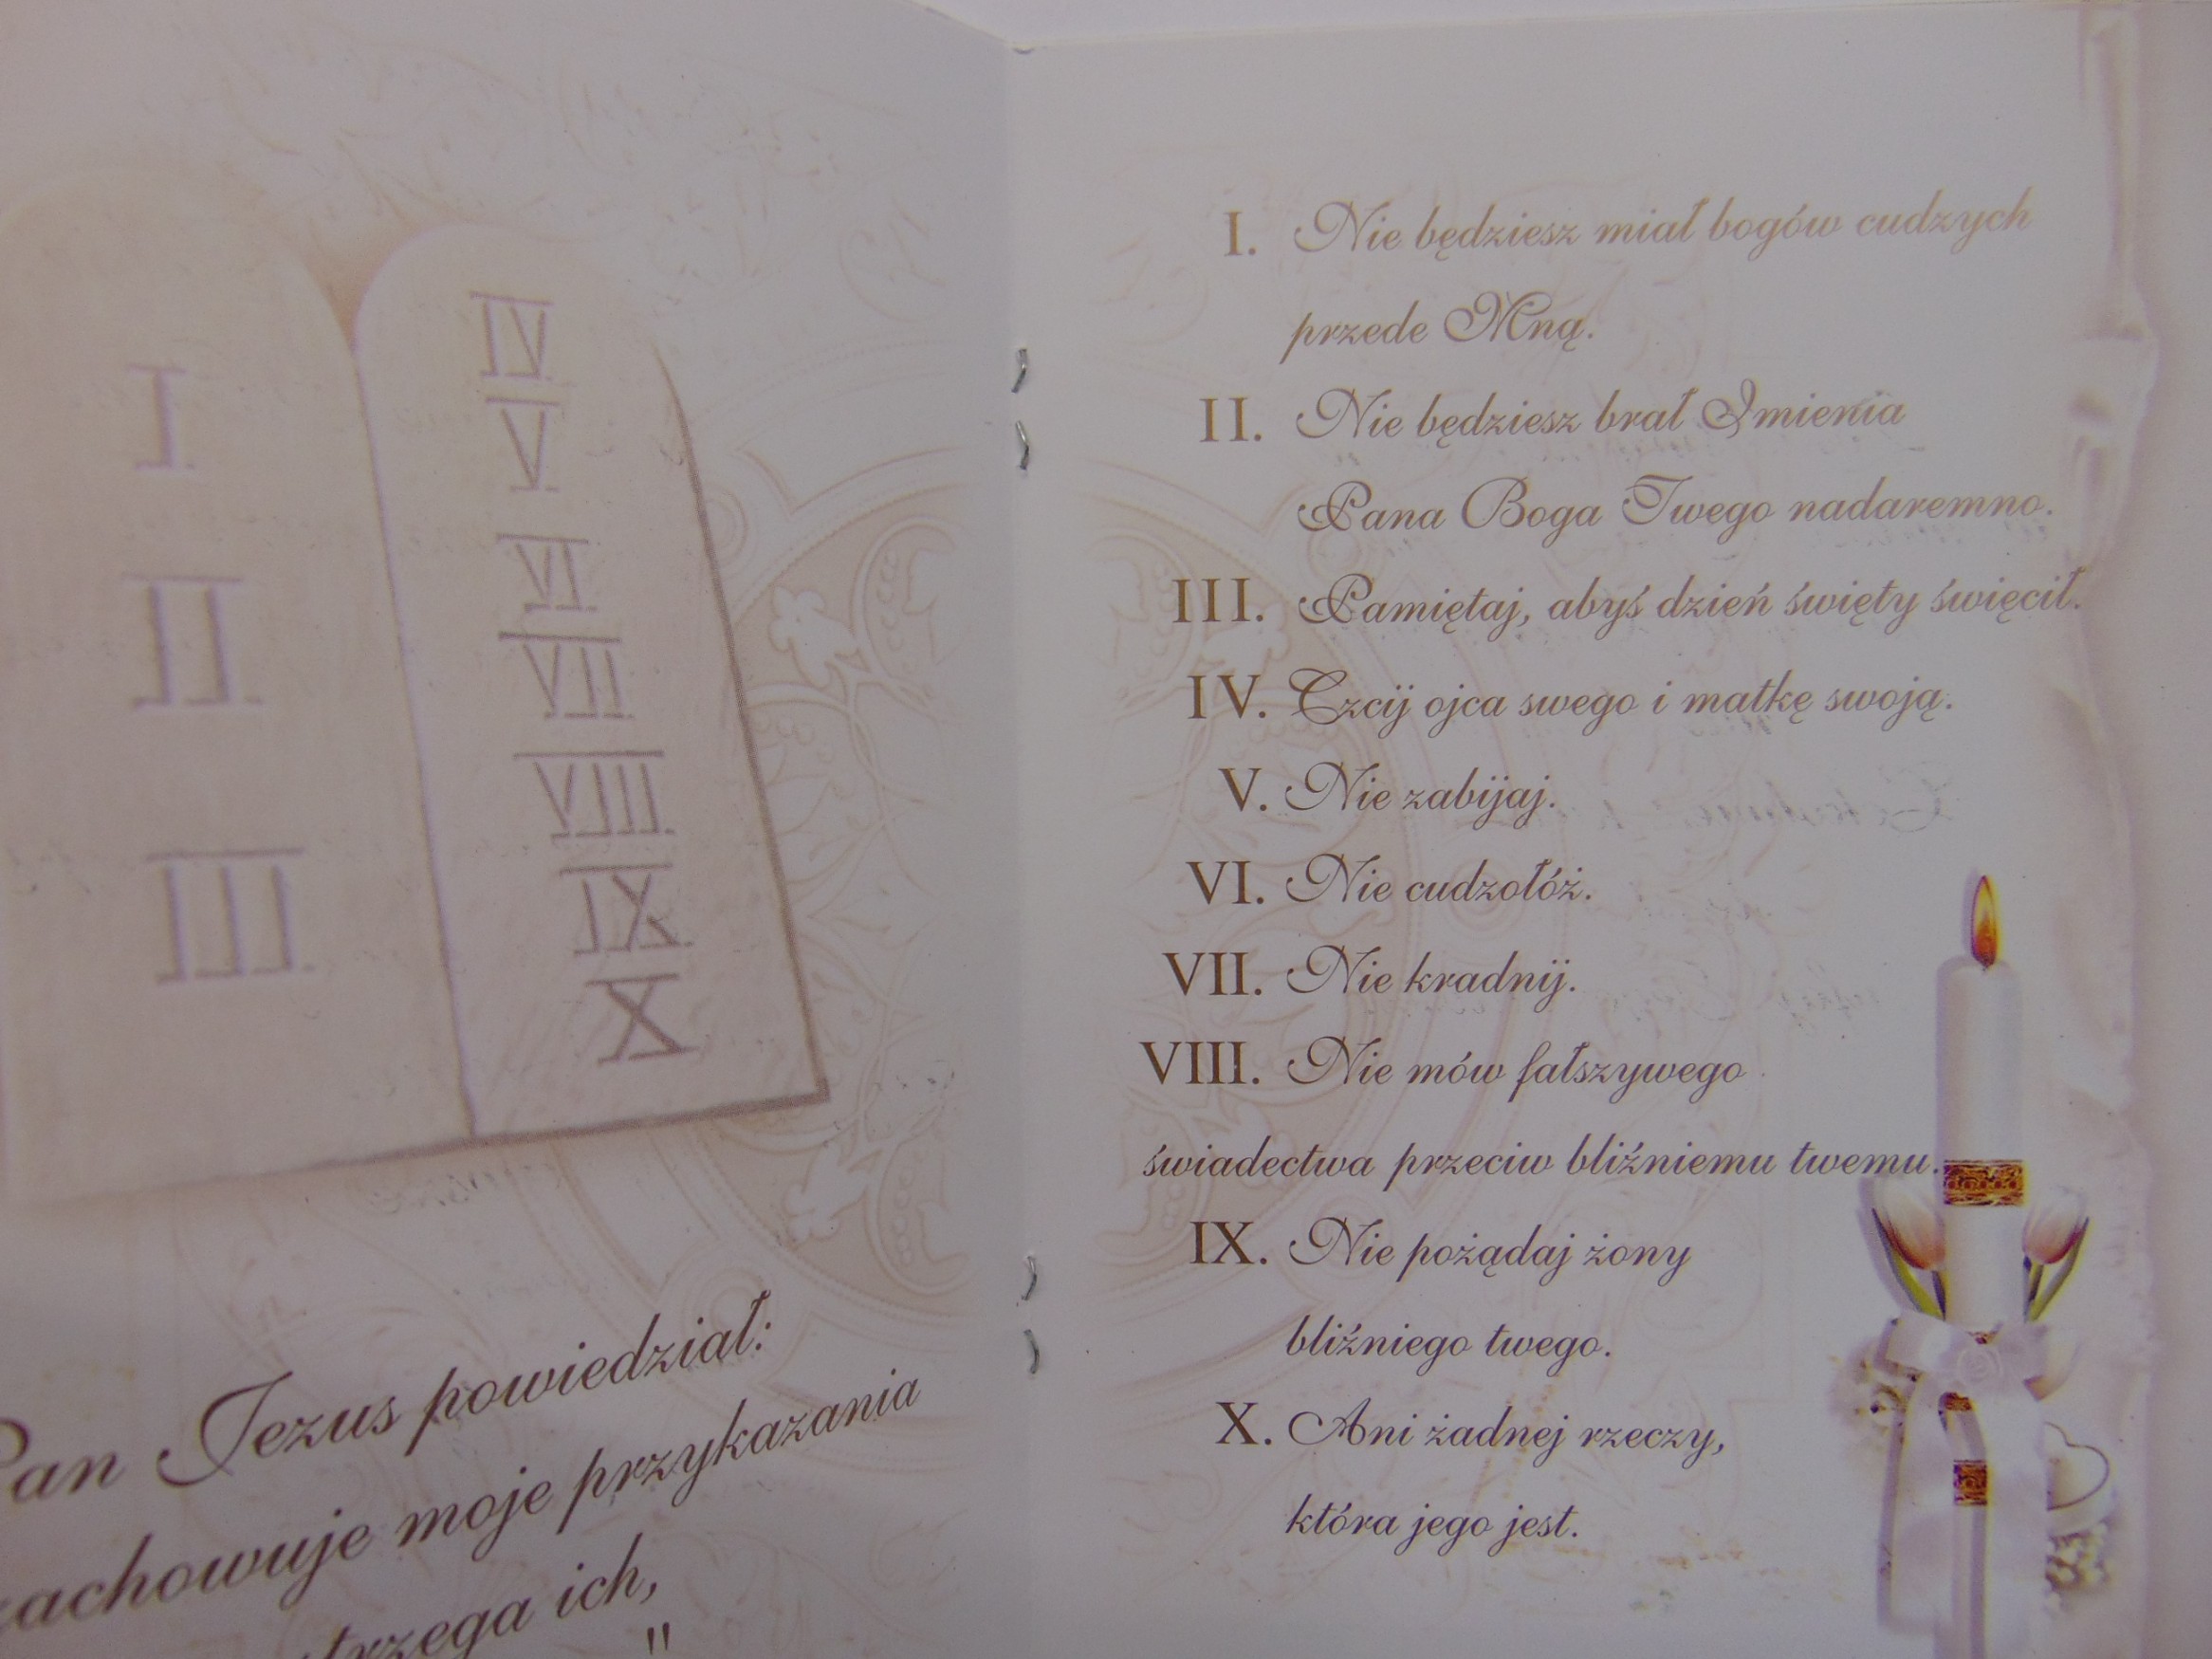 I
II
III
IV
V
VI
VII
VIII
IX
X
Pan Jezus powiedział:
zachowuje moje przykazania
ich,
"
I. Nie będziesz miał bogów cudzych
przede Mną.
II. Nie będziesz brał Imienia
Pana Boga Twego nadaremno.
III. Pamiętaj, abyś dzień święty święcił.
IV. Czcij ojca swego i matkę swoją.
V. Nie zabijaj.
VI. Nie cudzołóż.
VII. Nie kradnij.
VIII. Nie mów fałszywego
świadectwa przeciw bliźniemu twemu.
IX. Nie pożądaj żony
bliźniego twego.
X. Ani żadnej rzeczy,
która jego jest.